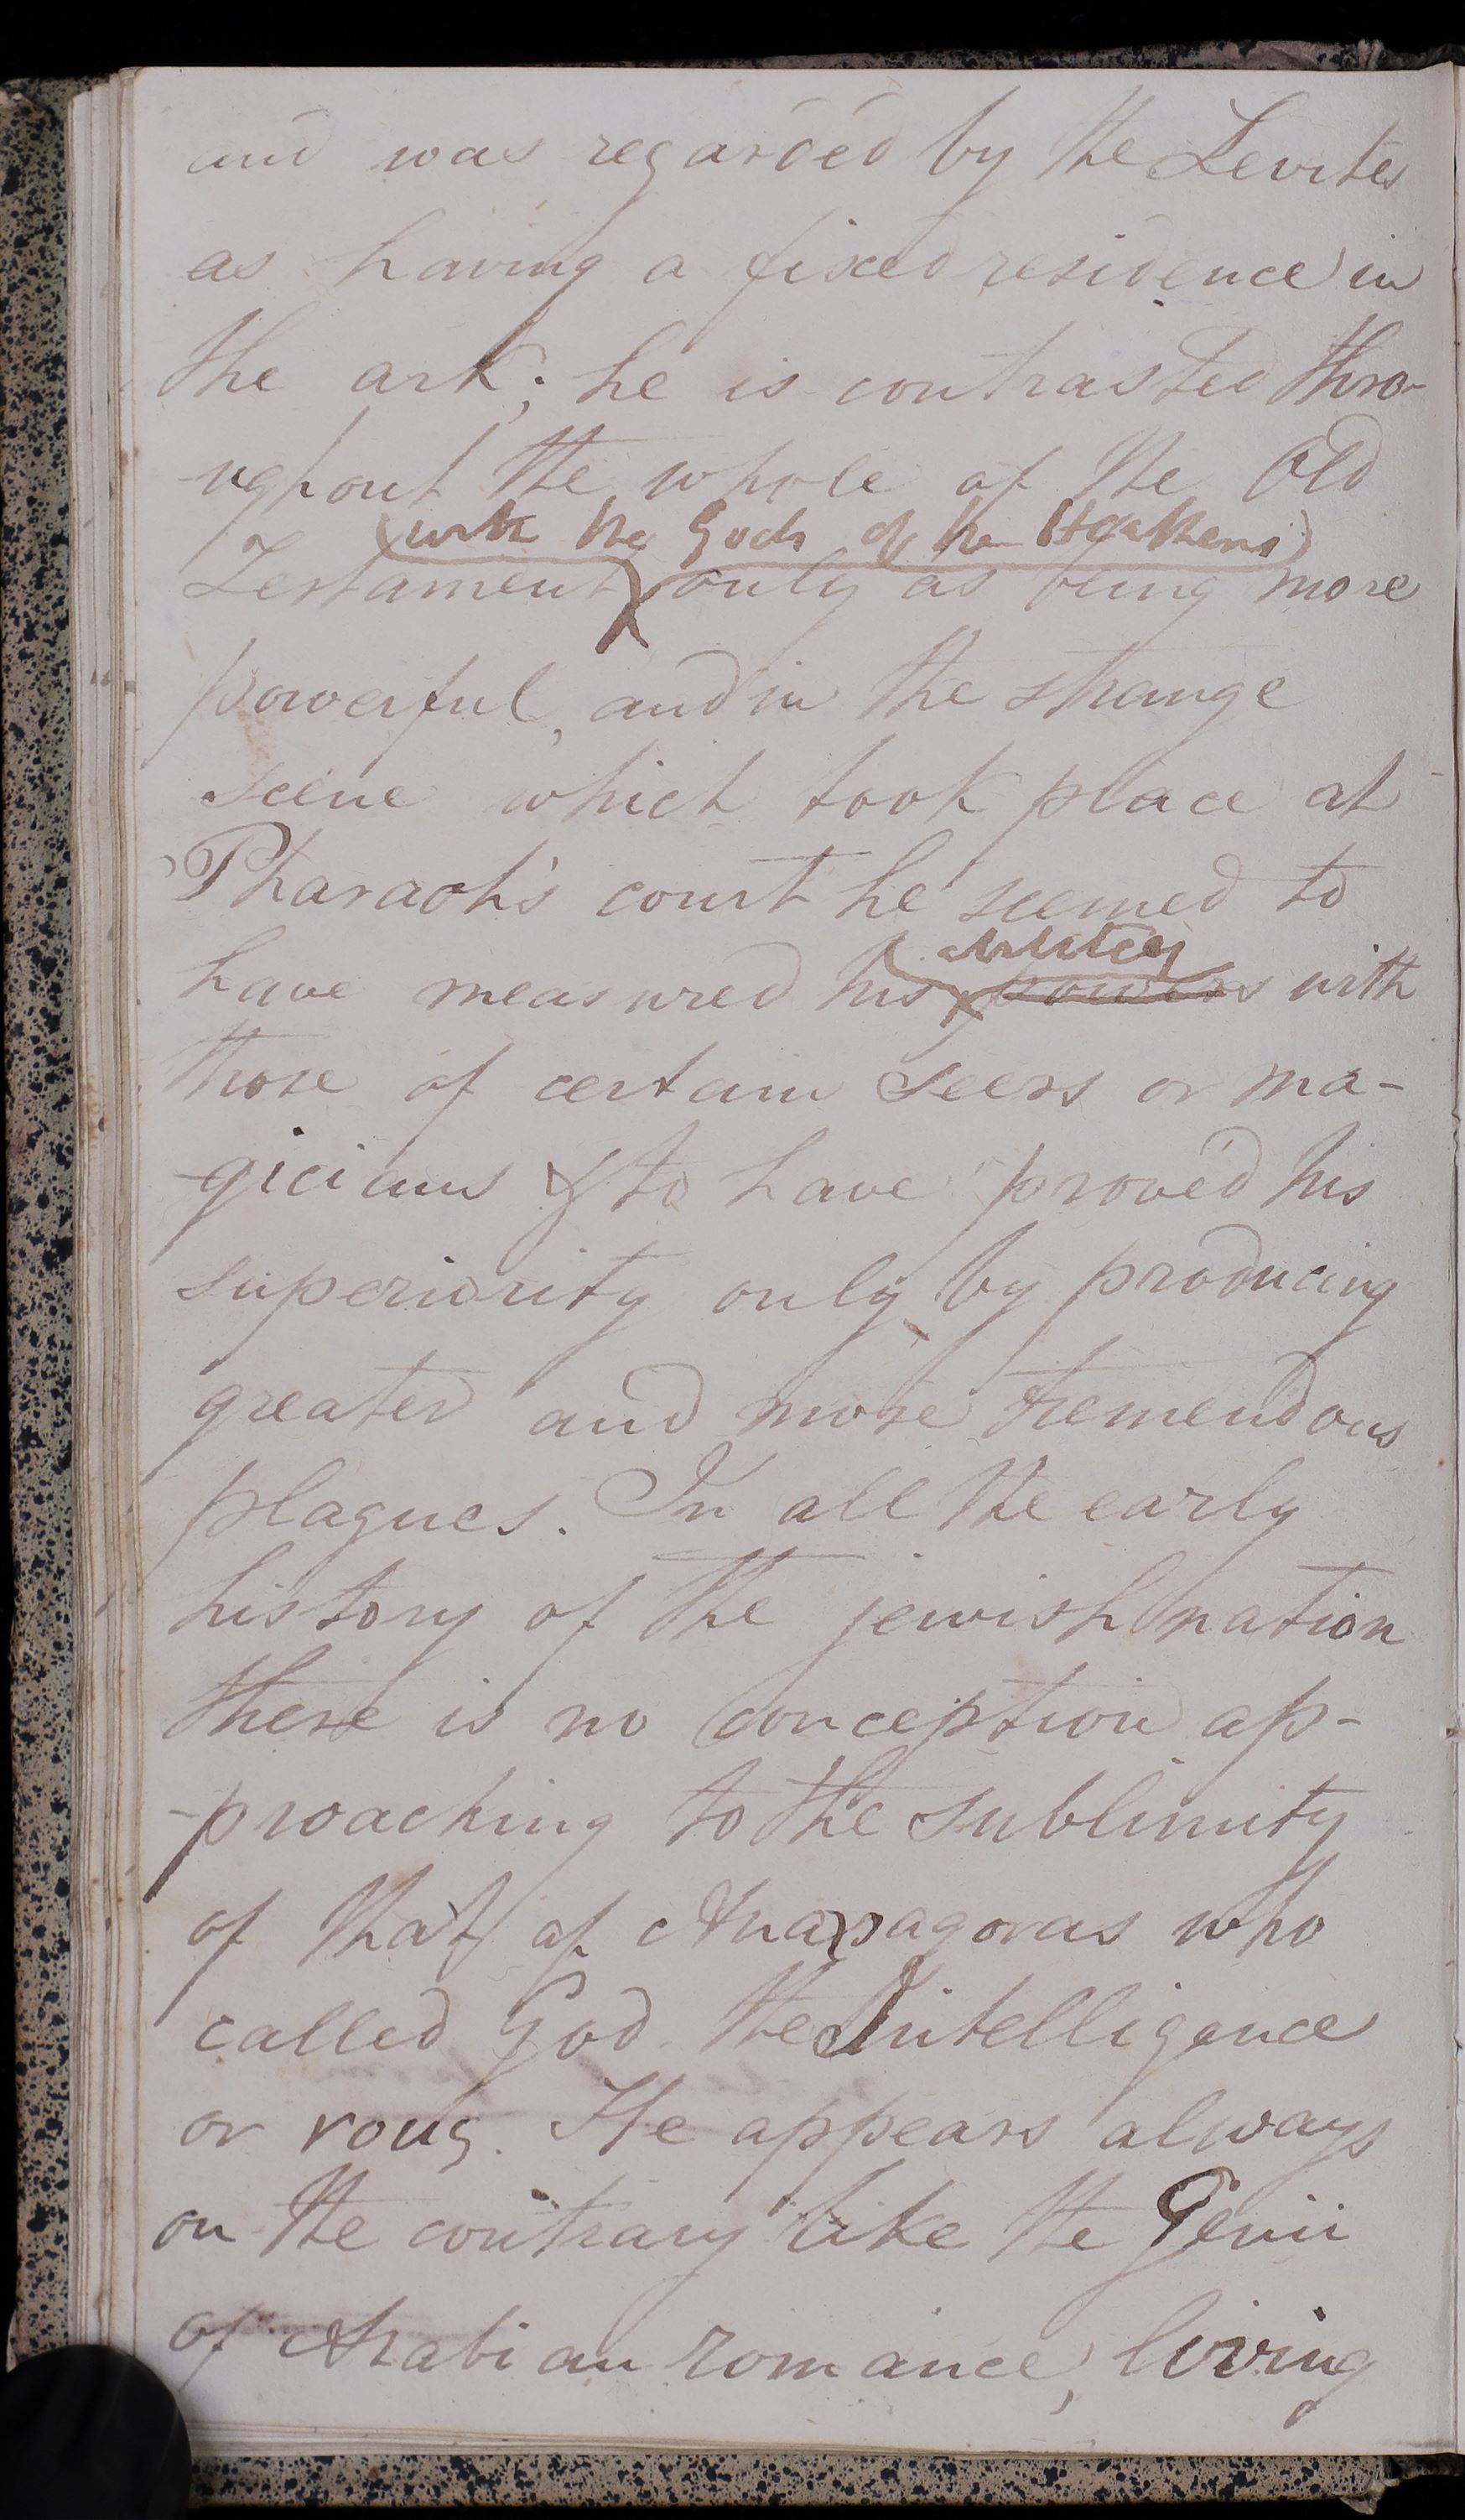 and was regarded by the Levites
as having a fixed residence in
the ark; he is contrasted thro-
-ughout the whole of the Old
(with the Gods of the Heathens)
Testament only as being more
powerful, and in the strange
scene which took place at
Pharaoh's court he seemed to
abilities
have measured his powers with
those of certain Seers or ma-
-gicians & to have proved his
superiority only by producing
greater and more tremendous
plagues. In all the early
history of the jewish nation
there is no conception ap-
-proaching to the sublimity
of that of Anaxagoras who
called God the Intelligence
or νους. He appears always
on the contrary like the Genii
of Arabian romance, living